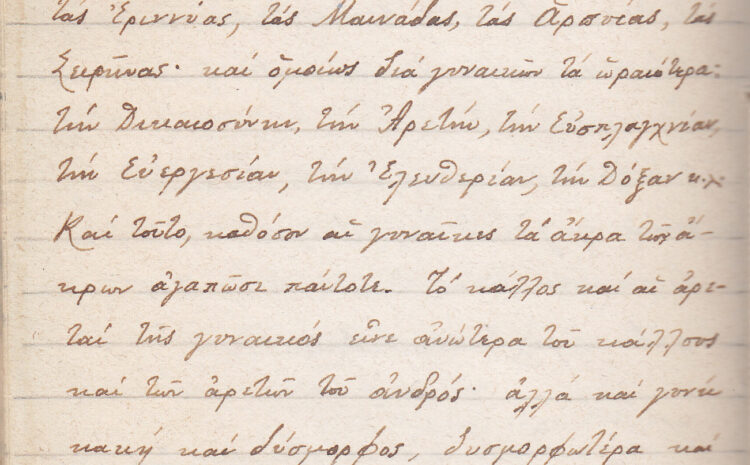 τάς Ἐριννύας, τάς Μαινάδας, τάς Ἁρπυίας, τάς
Σειρῆνας· καί ὁμοίως διά γυναικῶν τά ὡραιότερα:
τήν Δικαιοσύνην, τήν Ἀρετήν, τήν Εὐσπλαγχνίαν,
τήν Εὐεργεσίαν, τήν Ἐλευθερίαν, τήν Δόξαν κ.λ.
Καί τοῦτο, καθόσον αἱ γυναῖκες τά ἄκρα τῶν ἄ-
κρων ἀγαπῶσι πάντοτε. Τό κάλλος καί αἱ ἀρε-
ταί τῆς γυναικός εἶνε ἀνώτερα τοῦ κάλλους
καί τῶν ἀρετῶν τοῦ ἀνδρός· ἀλλά καί γυνή
κακή καί δύσμορφος, δυσμορφωτέρα καί